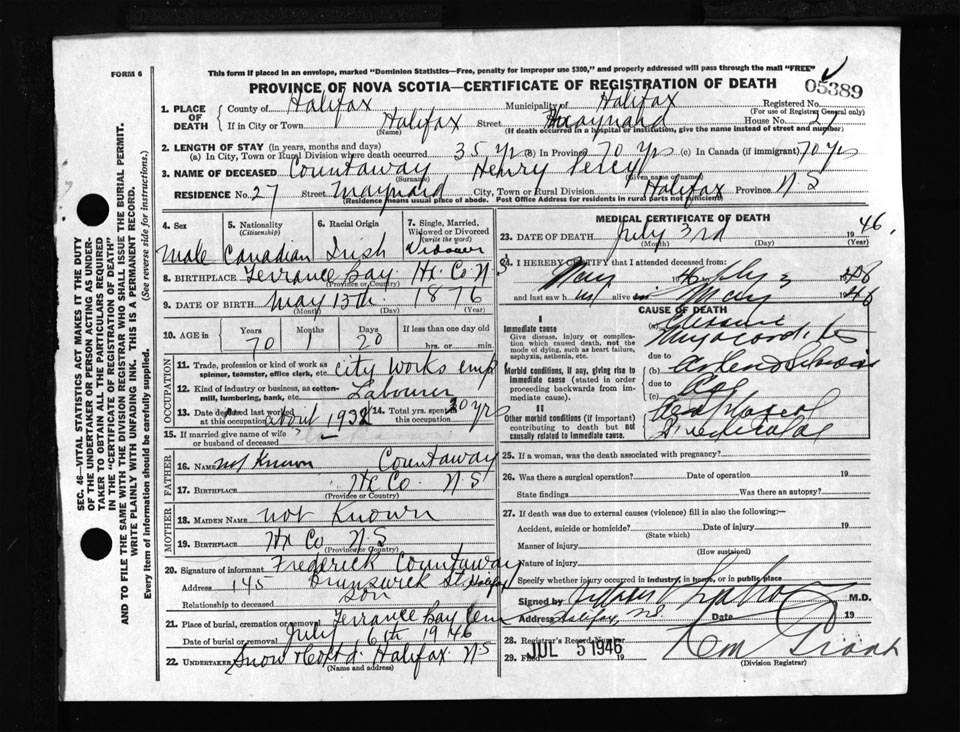 This form if placed in an envelope, marked "Dominion Statistics—Free, penalty for improper use $300," and properly addressed will pass through the mail "FREE"
FORM 6
PROVINCE OF NOVA SCOTIA—CERTIFICATE OF REGISTRATION OF DEATH
05389
1. PLACE OF DEATH
County of Halifax Municipality of Halifax Registered No.
(For use of Registrar General only)
If in City or Town Halifax Street Maynard House No. 27
(Name) (If death occurred in a hospital or institution, give the name instead of street and number)
2. LENGTH OF STAY (in years, months and days)
(a) In City, Town or Rural Division where death occurred 35 Yrs (b) In Province 70 Yrs (c) In Canada (if immigrant) 70 yrs
3. NAME OF DECEASED Countaway Henry Percy
(Surname) (Given name or names)
RESIDENCE No. 27 Street Maynard City, Town or Rural Division Halifax Province N.S
(Residence means usual place of abode. Post Office Address for residents in rural parts not sufficient)
4. Sex 5. Nationality (Citizenship) 6. Racial Origin 7. Single, Married, Widowed or Divorced (write the word)
Male Canadian Irish Widower
8. BIRTHPLACE Terrance Bay Hx Co N S
(Province or Country)
9. DATE OF BIRTH May 13th 1876
(Month) (Day) (Year)
10. AGE in Years Months Days If less than one day
70 1 20 hrs. or min.
OCCUPATION
11. Trade, profession or kind of work as spinner, teamster, office clerk, etc. city works emp
12. Kind of industry or business, as cotton-mill, lumbering, bank, etc. Labourer
13. Date deceased last worked at this occupation April 1932 14. Total yrs. spent in this occupation 30 yrs
15. If married give name of wife or husband of deceased ?
FATHER
16. NAME not Known Countaway
17. BIRTHPLACE Hx Co. N.S
(Province or Country)
MOTHER
18. MAIDEN NAME not Known
19. BIRTHPLACE Hx Co N.S
(Province or Country)
20. Signature of informant Frederick Countaway
Address 145 Brunswick St, Halifax
Relationship to deceased Son
21. Place of burial, cremation or removal Terrance Bay Cem
Date of burial or removal July 6th 1946
22. UNDERTAKER Snow & Co Ltd. Halifax N.S
(Name and address)
SEC. 46—VITAL STATISTICS ACT MAKES IT THE DUTY
OF THE UNDERTAKER OR PERSON ACTING AS UNDER-
TAKER TO OBTAIN ALL THE PARTICULARS REQUIRED
IN THE "CERTIFICATE OF REGISTRATION OF DEATH"
AND TO FILE THE SAME WITH THE DIVISION REGISTRAR WHO SHALL ISSUE THE BURIAL PERMIT.
WRITE PLAINLY WITH UNFADING INK. THIS IS A PERMANENT RECORD.
Every item of information should be carefully supplied. (See reverse side for instructions.)
MEDICAL CERTIFICATE OF DEATH
23. DATE OF DEATH July 3rd 1946.
(Month) (Day) (Year)
24. I HEREBY CERTIFY that I attended deceased from:
May 1946 July 3
and last saw him alive on May 1946
CAUSE OF DEATH
I
Immediate cause
Give disease, injury or complication which caused death, not the mode of dying, such as heart failure, asphyxia, asthenia, etc.
(a)
Myocarditis
due to
Morbid conditions, if any, giving rise to immediate cause (stated in order proceeding backwards from immediate cause).
(b)
due to
(c)
II
Other morbid conditions (if important) contributing to death but not causally related to immediate cause.
25. If a woman, was the death associated with pregnancy?
26. Was there a surgical operation? Date of operation 19
State findings Was there an autopsy?
27. If death was due to external causes (violence) fill in also the following:—
Accident, suicide or homicide? Date of injury 19
(State which)
Manner of injury
(How sustained)
Nature of injury
Specify whether injury occurred in industry, in home, or in public place
Signed by M.D.
Address Halifax, NS Date 19
28. Registrar's Record Number
29. Filed JUL 5 1946 19
(Division Registrar)